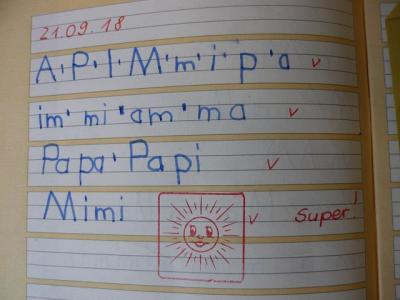 21.09.18
A·P·I·M·m·i·p·a ✓
im·mi·am·ma ✓
Papa·Papi ✓
Mimi ✓ Super!